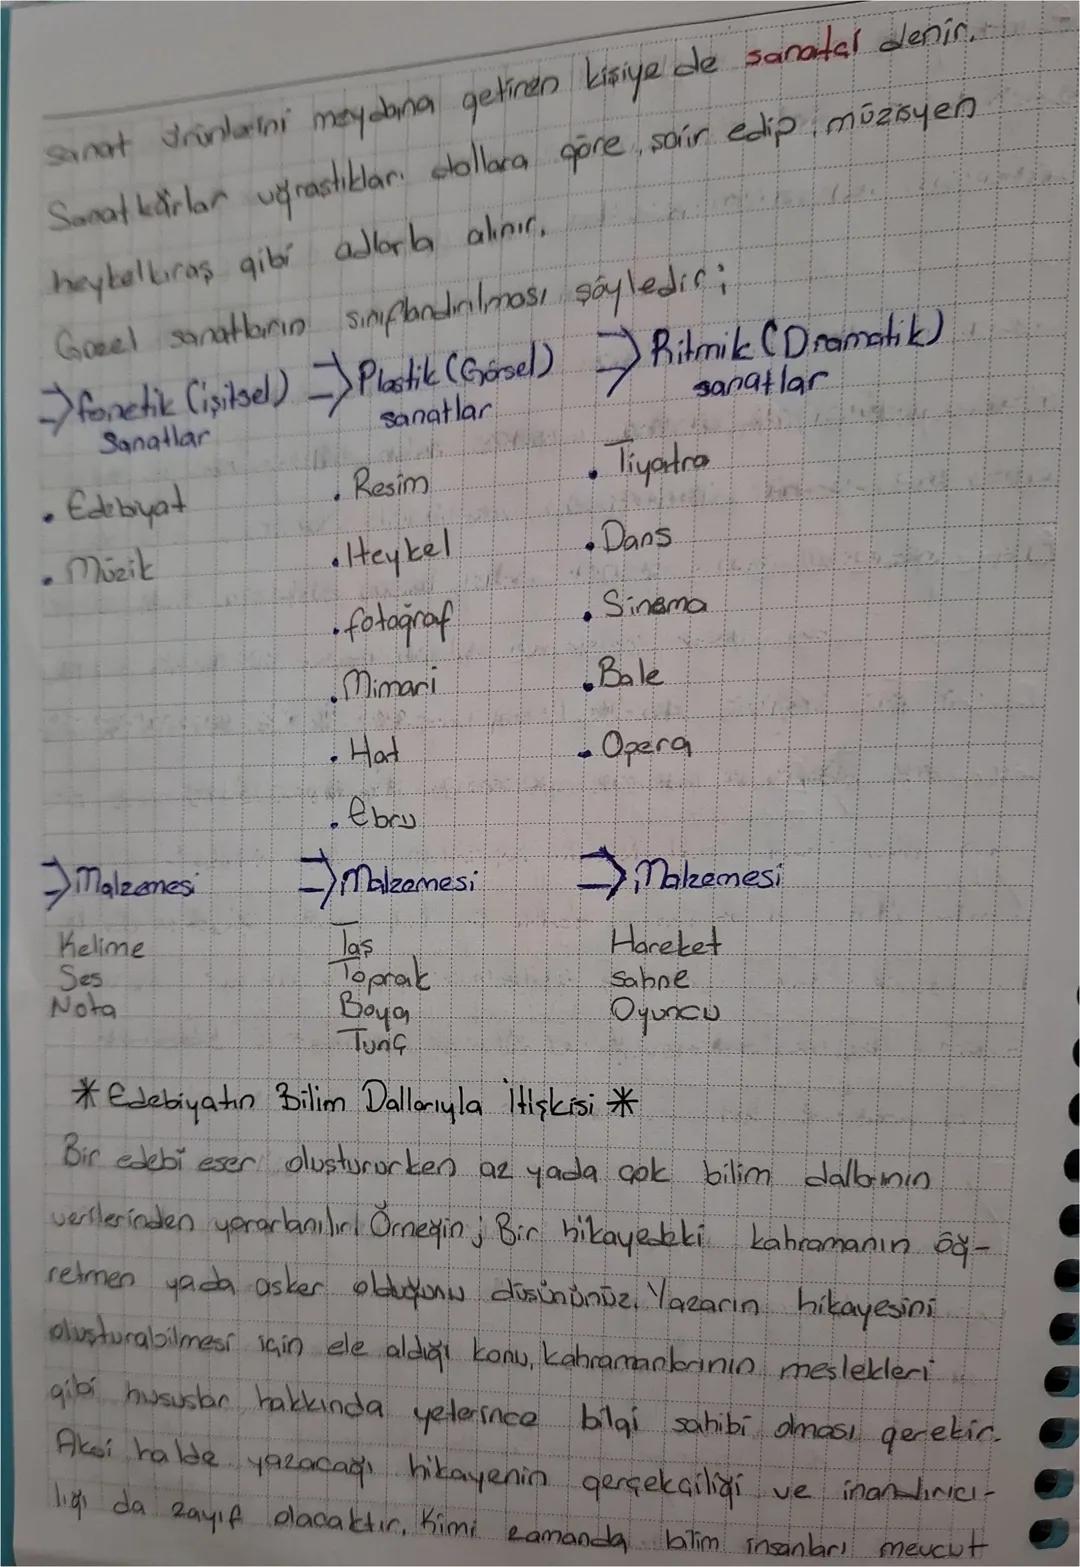 sanat ürünlerini meydana getiren kişiye de sanatçı denir.
Sanatkârlar uğraştıkları dallara göre, şair edip, müzisyen
heykeltıraş gibi adlarla alınır.
Güzel sanatların sınıflandırılması şöyledir;
⇒ fonetik (işitsel) Sanatlar
• Edebiyat
• Müzik
⇒ Plastik (Görsel) sanatlar
• Resim
• Heykel
• fotoğraf
• Mimari
• Hat
• Ebru
⇒ Ritmik (Dramatik) sanatlar
• Tiyatro
• Dans
• Sinema
• Bale
• Opera
⇒ Malzemesi
Kelime
Ses
Nota
⇒ Malzemesi
Taş
Toprak
Boya
Tunç
⇒ Malzemesi
Hareket
sahne
Oyuncu
* Edebiyatın Bilim Dallarıyla İlişkisi *
Bir edebi eser oluştururken az yada çok bilim dallarının
verilerinden yararlanılır. Örneğin; Bir hikayedeki kahramanın öğ-
retmen yada asker olduğunu düşününüz. Yazarın hikayesini
oluşturabilmesi için ele aldığı konu, kahramanlarının meslekleri
gibi hususlar hakkında yeterince bilgi sahibi olması gerekir.
Aksi halde yazacağı hikayenin gerçekçiliği ve inandırıcı-
lığı da zayıf olacaktır. Kimi zamanda bilim insanları mevcut